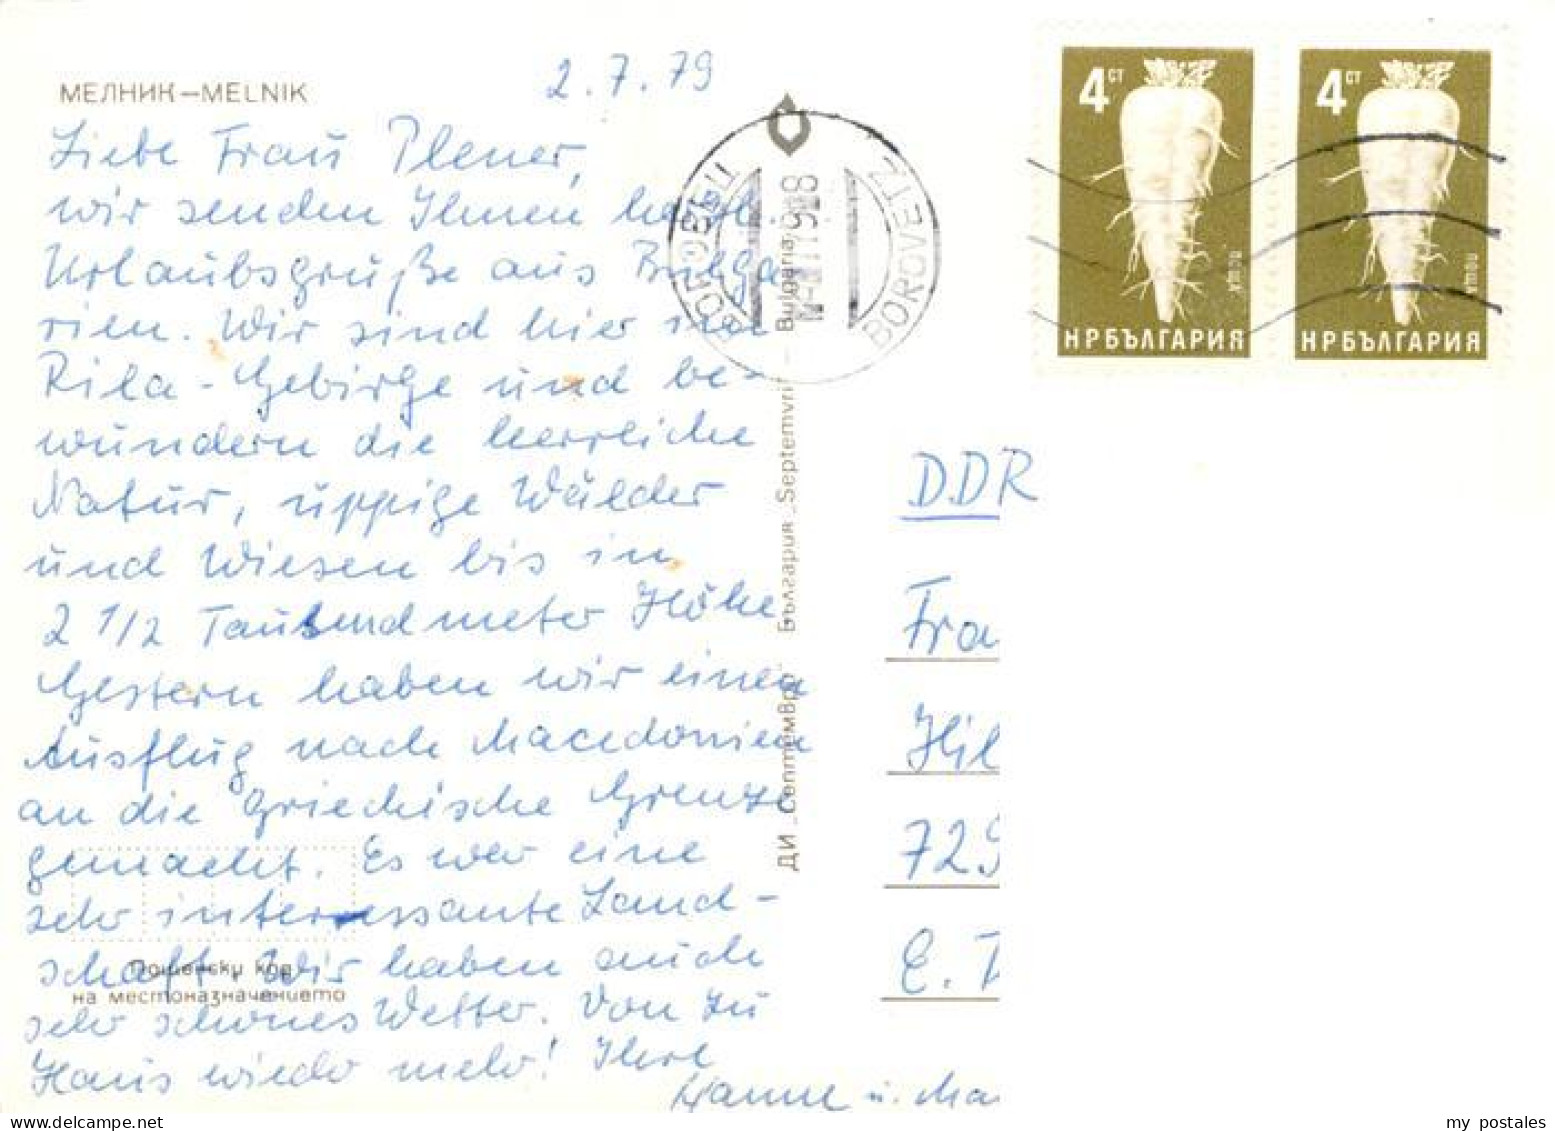 МЕЛНИК—MELNIK
2.7.79
Liebe Frau Plener,
wir senden Ihnen herzl.
Urlaubsgrüße aus Bulga
rien. Wir sind hier im
Rila-Gebirge und be-
wundern die herrliche
Natur, üppige Wälder
und Wiesen bis in
2 1/2 Tausendmeter Höhe
Gestern haben wir einen
Ausflug nach Macedonien
an die Griechische Grenze
gemacht. Es war eine
sehr interessante Land-
schaft. Wir haben auch
sehr schönes Wetter. Von zu
Haus wieder mehr! Ihre
Hanne u. Ma
Пощенски код
на местоназначението
ДИ „Септември" България „Septemvri" — Bulgaria
БОРОВЕЦ
BOROVETZ
4 СТ
НРБЪЛГАРИЯ
4 СТ
НРБЪЛГАРИЯ
DDR
Fra
Hil
729
E. T
my postales